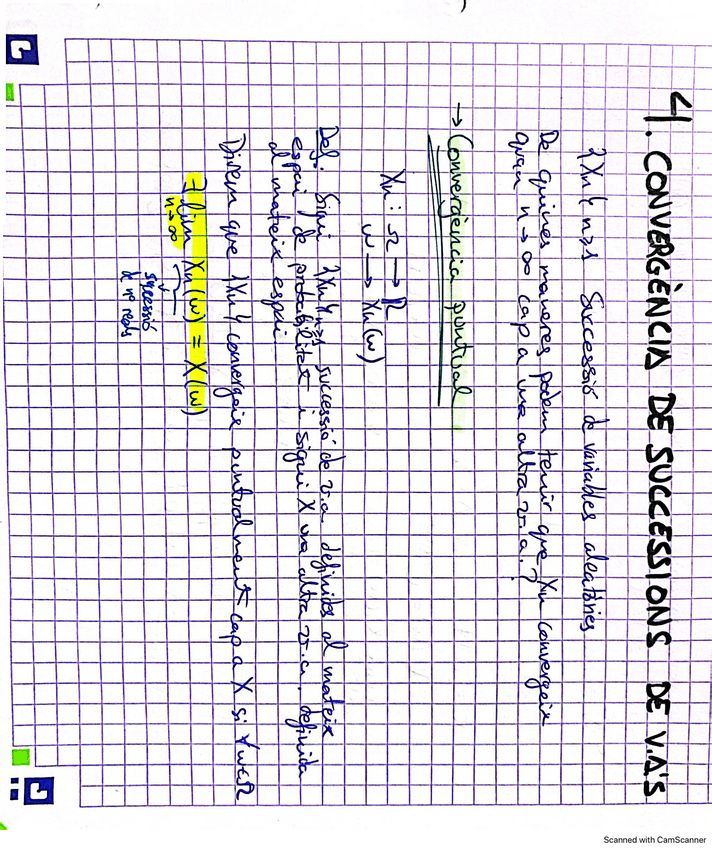 4. CONVERGÈNCIA DE SUCCESSIONS DE V.A'S
{Xn} n≥1 Successió de variables aleatòries
De quines maneres podem tenir que Xn convergeix
quan n→∞ cap a una altra v.a.?
→ Convergència puntual
Xn : Ω → R
w → Xn(w)
Def. Sigui {Xn} n≥1 successió de v.a. definides al mateix
espai de probabilitat i sigui X una altra v.a. definida
al mateix espai.
Direm que {Xn} convergeix puntualment cap a X si ∀w∈Ω
∃ lim Xn(w) = X(w)
n→∞
successió
de nº reals
Scanned with CamScanner